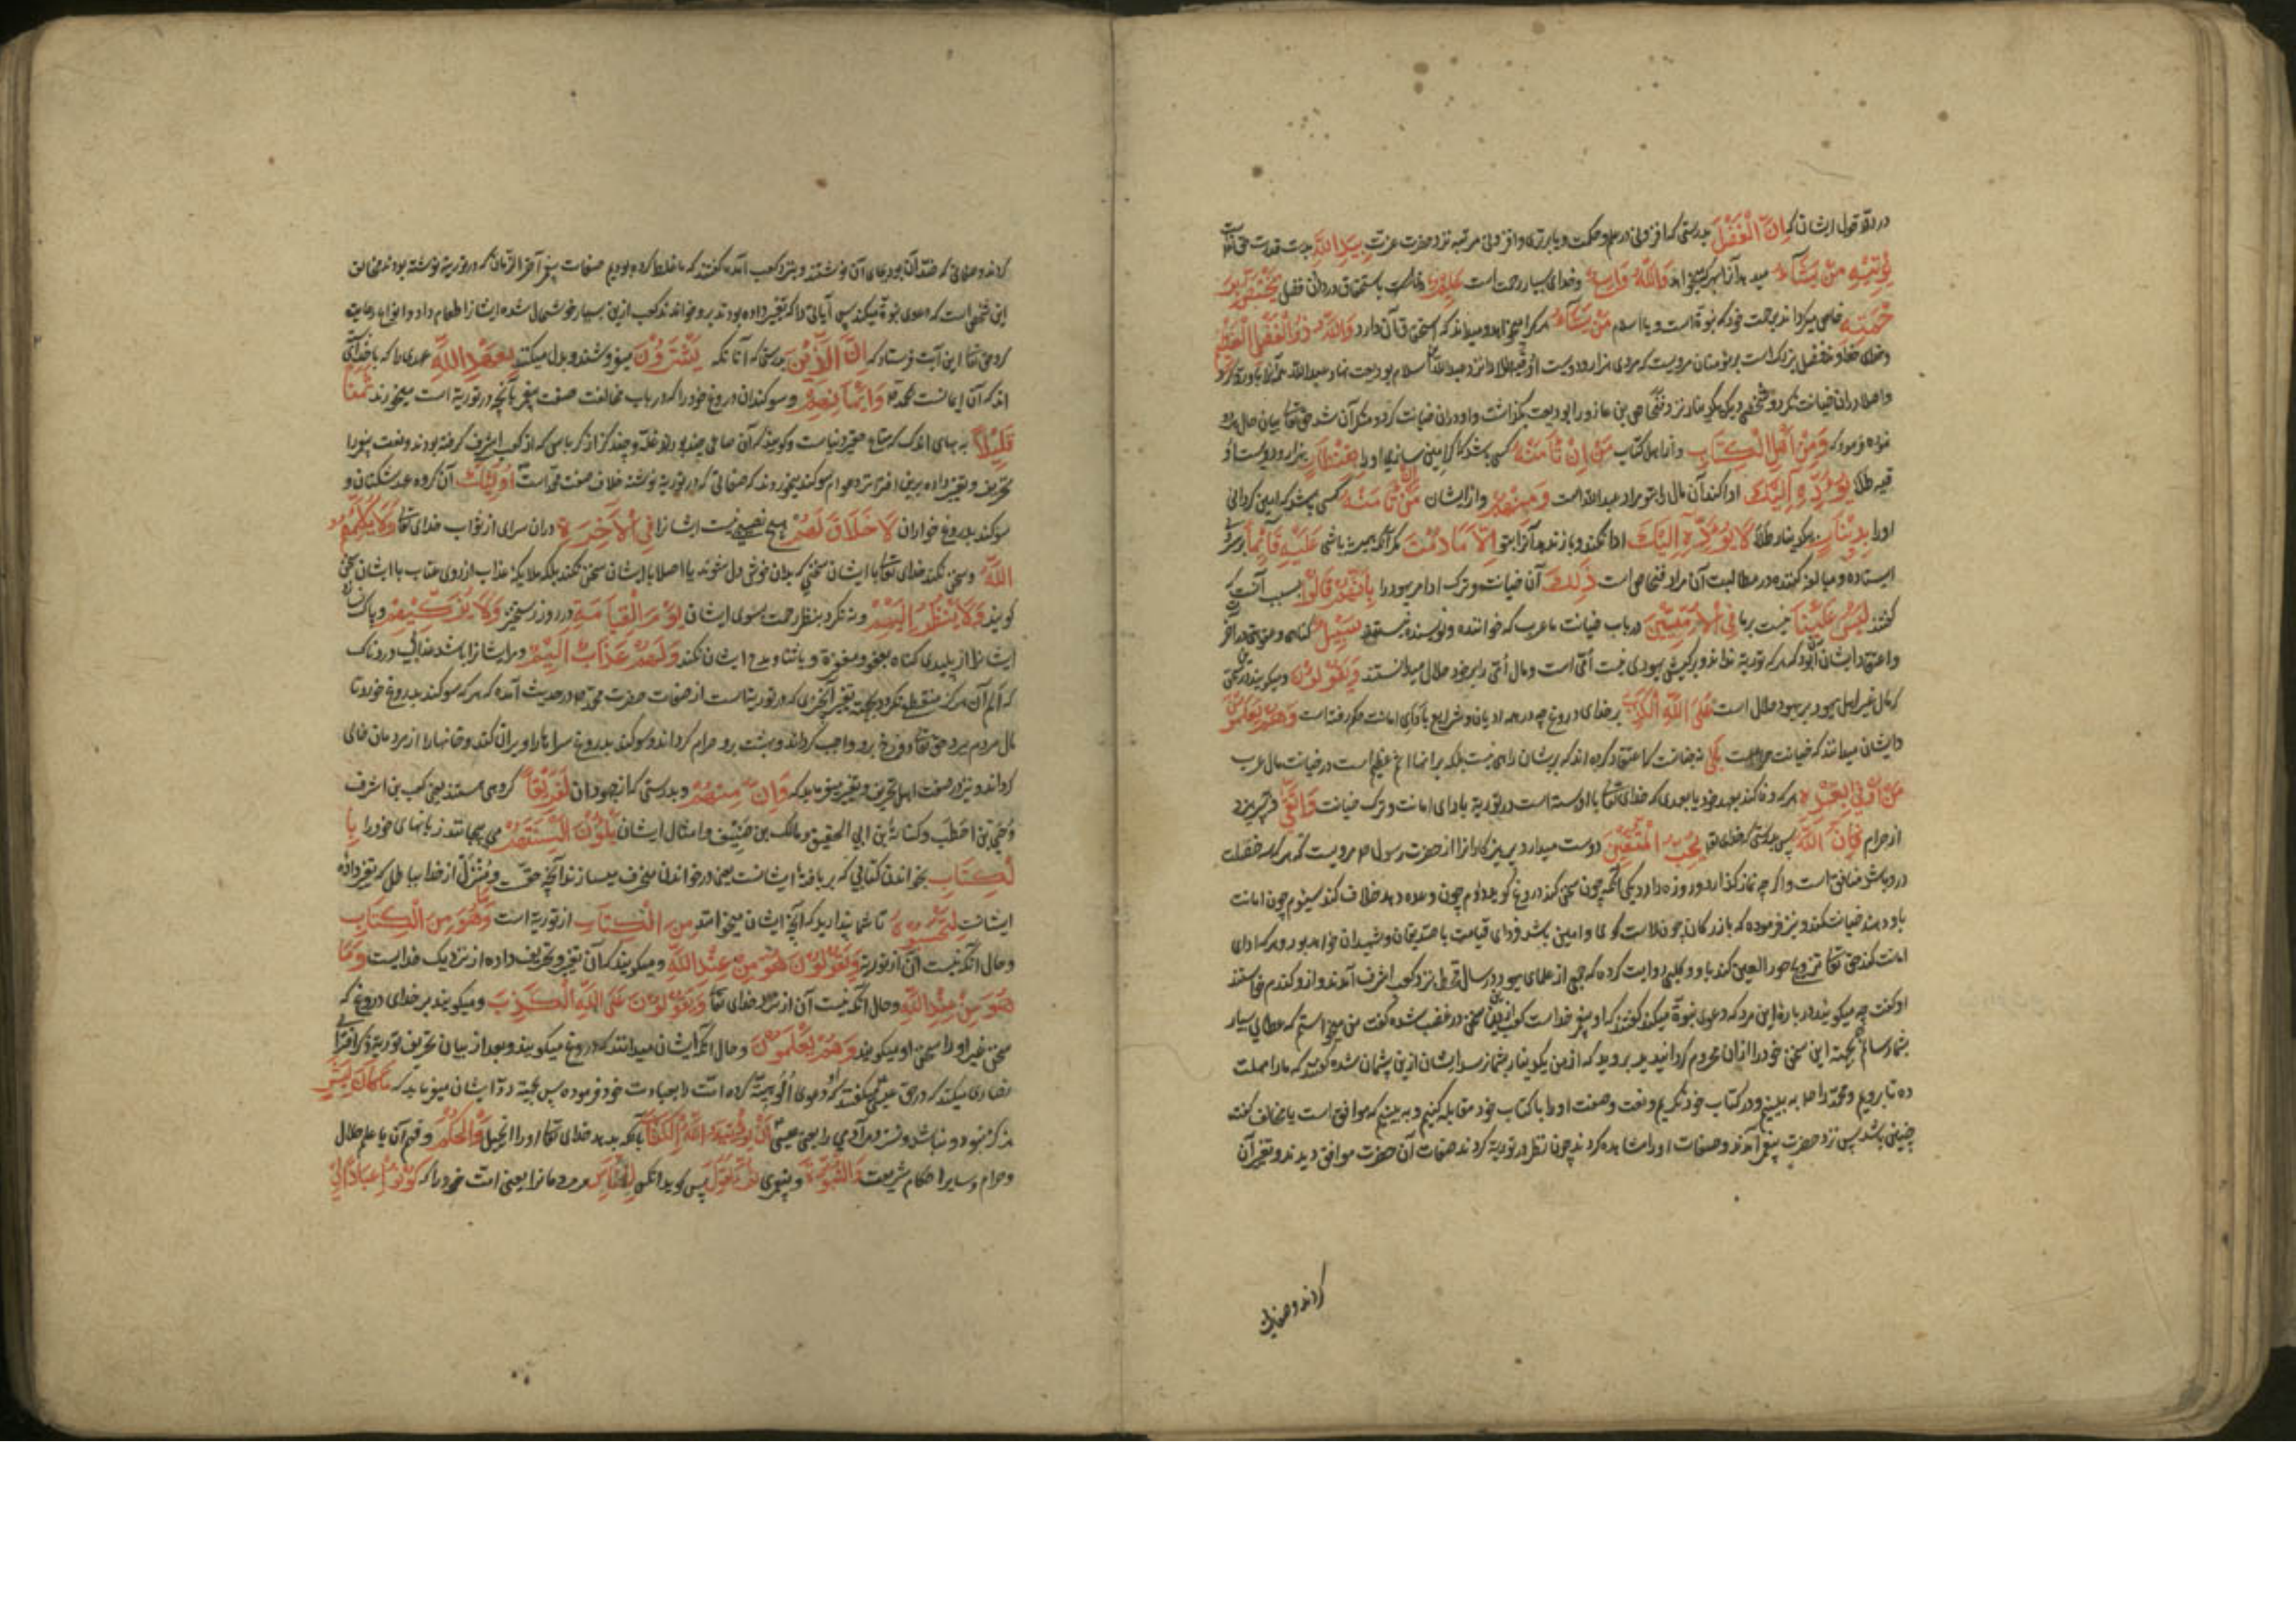 در رد قول ایشان که اِنَّ الْفَضْلَ بدرستی که افزونی در علم و حکمت و یا برتری و افزونی مرتبه نزد حضرت عزت بِیَدِ اللّٰهِ بدست قدرت حق است
یُؤْتِیْهِ مَنْ یَشَآءُ میدهد آنرا بهر که میخواهد وَاللّٰهُ وَاسِعٌ و خدای بسیار رحمت است عَلِیْمٌ داناست باستحقاق در دادن فضل یَخْتَصُّ بِرَ
حْمَتِهٖ خاص میگرداند برحمت خود که نبوة است و یا اسلام مَنْ یَشَآءُ هر کرا میخواهد و میداند که استحقاق آن دارد وَاللّٰهُ ذُو الْفَضْلِ الْعَظِیْمِ
و خدای خداوند فضل بزرگ است بر مؤمنان مرویست که مردی هزار و دویست اوقیه طلا نزد عبدالله سلام بودیعت نهاد عبدالله
و اصلا در ان خیانت نکرد و شخصی دیگر یکدینار نزد فنحاص بن عازورا بودیعت بگذاشت و او در ان خیانت کرد و منکر آن شد حق تعالی بیان حال هر دو
نموده فرمود که وَمِنْ اَهْلِ الْکِتَابِ و از اهل کتاب مَنْ اِنْ تَأْمَنْهُ کسی باشد که اگر امین سازی او را بِقِنْطَارٍ بهزار و دویست او
قیه طلا یُؤَدِّهٖ اِلَیْکَ ادا کند آن مال را بتو مراد عبدالله است وَمِنْهُمْ و از ایشان مَنْ اِنْ تَأْمَنْهُ کسی باشد که امین کردانی
او را بِدِیْنَارٍ بیکدینار طلا لَا یُؤَدِّهٖ اِلَیْکَ ادا نکند و باز ندهد آنرا بتو اِلَّا مَا دُمْتَ مکر آنکه همیشه باشی عَلَیْهِ قَآئِمًا بر سر او
ایستاده و مبالغه کننده در مطالبت آن مراد فنحاص است ذٰلِکَ آن خیانت و ترک ادا مر یهود را بِاَنَّهُمْ قَالُوْا بسبب آنست که
گفتند لَیْسَ عَلَیْنَا نیست بر ما فِی الْاُمِّیِّیْنَ در باب خیانت ما عرب که خواننده و نویسنده نیستند سَبِیْلٌ کناهی و عقوبتی در آخرت
و اعتقاد ایشان آن بود که هر که توریة نداند و بر کیش یهودی نیست اُمّی است و مال اُمّی را بر خود حلال میدانستند وَیَقُوْلُوْنَ و میکویند
که مال غیر اهل یهود بر یهود حلال است عَلَی اللّٰهِ الْکَذِبَ بر خدای دروغ چه در همه ادیان و شرایع بادای امانت حکم رفته است وَهُمْ یَعْلَمُوْنَ
و ایشان میدانند که خیانت حرامست بَلٰی نه چنانست که اعتقاد کرده اند که بر ایشان راهی نیست بلکه بر انها اثم عظیم است در خیانت مال عرب
مَنْ اَوْفٰی بِعَهْدِهٖ هر که وفا کند بعهد خود یا بعهدی که خدای تعالی با او بسته است در توریة بادای امانت و ترک خیانت وَاتَّقٰی و بپرهیزد
از حرام فَاِنَّ اللّٰهَ پس بدرستی که خدای تع یُحِبُّ الْمُتَّقِیْنَ دوست میدارد پرهیزکارانرا از حضرت رسول ص مرویست که هر که سه خصلت
درو باشد منافق است و اگر چه نماز گذارد و روزه دارد یکی آنکه چون سخن کند دروغ کوید دوم چون وعده دهد خلاف کند سیوم چون امانت
باو دهند خیانت کند و نیز فرموده که بازرکان چون راست کوی و امین باشد فردای قیامت با صدیقان و شهیدان خواهد بود و هر که ادای
امانت کند حق تعالی تزویج حور العین کند باو و کلبی روایت کرده که جمعی از علمای یهود در سال قحط نزد کعب اشرف آمدند و ازو کندم خواستند
او گفت چه میکویید در باره این مرد که دعوی نبوة میکند گفتند که او پیغمبر خداست کعب ازین سخن در غضب شده گفت من میخواستم که عطای بسیار
بشما رسانم بجهة این سخن خود را ازان محروم کردانیدید بروید که از من یکدینار بشما نرسد ایشان ازین پشیمان شده گفتند که ما را مهلت
ده تا برویم و محمد را ببینیم و در کتاب خود نکریم و نعت و صفت او را با کتاب خود مقابله کنیم و ببینیم که موافق است یا مخالف گفت
چنین باشد پس نزد حضرت پیغمبر آمدند و صفات او را مشاهده کردند چون نظر در توریة کردند صفات آن حضرت موافق دیدند و تغییر آن
کردند و صفاتی
کردند و صفاتی که ضد آن بود بجای آن نوشتند و نزد کعب آمده گفتند که ما غلط کرده بودیم صفات پیغمبر آخر الزمان که در توریة نوشته بودند مخالف
این شخص است که دعوی نبوة میکند پس آیاتی را که تغییر داده بودند برو خواندند کعب ازین بسیار خوشحال شده ایشانرا طعام داد و انواع رعایت
کرد حق تعالی این آیت فرستاد که اِنَّ الَّذِیْنَ بدرستی که آنانکه یَشْتَرُوْنَ میفروشند و بدل میکنند بِعَهْدِ اللّٰهِ عهدی را که با خدای
اند که آن ایمانست بمحمد وَاَیْمَانِهِمْ و سوکندان دروغ خود را که در باب مخالفت صفت پیغمبر بآنچه در توریة است میخورند ثَمَنًا
قَلِیْلًا به بهای اندک که متاع حقیر دنیاست و کویند که آن صاعی چند بود از غله و چند کز از کرباس که از کعب اشرف گرفته بودند و نعت پیغمبر را
تحریف و تغییر داده برین افترا نزد عوام سوکند میخوردند که صفاتی که در توریة نوشته خلاف صفت محمد است اُولٰٓئِکَ آن گروه عهد شکنان و
سوکند بدروغ خواران لَا خَلَاقَ لَهُمْ هیچ نصیبی نیست ایشانرا فِی الْاٰخِرَةِ در ان سرای از ثواب خدای تعالی وَلَا یُکَلِّمُهُمُ
اللّٰهُ و سخن نکند خدای تعالی با ایشان سخنی که بدان خوش دل شوند یا اصلا با ایشان سخن نکند بلکه ملایکهٔ عذاب از روی عتاب با ایشان سخن
کویند وَلَا یَنْظُرُ اِلَیْهِمْ و نه نکرد بنظر رحمت بسوی ایشان یَوْمَ الْقِیَامَةِ در روز رستخیز وَلَا یُزَکِّیْهِمْ و پاک نسازد
ایشانرا از پلیدی کناه بعفو و مغفرة و یا ثنا و مدح ایشان نکند وَلَهُمْ عَذَابٌ اَلِیْمٌ و مر ایشانرا باشد عذابی دردناک
که الم آن هرکز منقطع نکردد بجهة تغییر آنچیزی که در توریتست از صفات حضرت محمد ص و در حدیث آمده که هر که سوکند بدروغ خورد تا
مال مردم ببرد حق تعالی دوزخ برو واجب کرداند و بهشت برو حرام کرداند و سوکند بدروغ سراها را ویران کند و خانهارا از مردمان خالی
کرداند و نیز در صفت اهل تحریف و تغییر میفرماید که وَاِنَّ مِنْهُمْ و بدرستی که از یهودان لَفَرِیْقًا گروهی هستند یعنی کعب بن اشرف
و حُیَیّ بن اخطب و کنانة بن ابی الحقیق و مالک بن ضیف و امثال ایشان یَلْوُنَ اَلْسِنَتَهُمْ می پیچانند زبانهای خود را بِا
لْکِتَابِ بخواندن کتابی که بر بافتهٔ ایشانست یعنی در خواندن منحرف میسازند آنچه حق و مُنْزَل از خدا بباطل که تغییر داده
ایشانست لِتَحْسَبُوْهُ تا شما پندارید که آنچه ایشان میخوانند مِنَ الْکِتَابِ از توریة است وَمَا هُوَ مِنَ الْکِتَابِ
و حال آنکه نیست آن از توریة وَیَقُوْلُوْنَ هُوَ مِنْ عِنْدِ اللّٰهِ و میکویند که آن تغییر و تحریف داده از نزدیک خدایست وَمَا
هُوَ مِنْ عِنْدِ اللّٰهِ و حال آنکه نیست آن از نزد خدای تعالی وَیَقُوْلُوْنَ عَلَی اللّٰهِ الْکَذِبَ و میکویند بر خدای دروغ که
سخن غیر او را سخن او میکویند وَهُمْ یَعْلَمُوْنَ و حال آنکه ایشان میدانند که دروغ میکویند و بعد از بیان تحریف توریة ذکر افترای
نصاری میکند که در حق عیسی میکفتند که او دعوی الوهیة کرده امت را بعبادت خود فرموده پس بجهة رد ایشان میفرماید که مَا کَانَ لِبَشَرٍ
هرکز نبود و نباشد و نسزد مر آدمی را یعنی عیسی اَنْ یُؤْتِیَهُ اللّٰهُ الْکِتَابَ بآنکه بدهد خدای تعالی او را انجیل وَالْحُکْمَ و فهم آن یا علم حلال
و حرام و سایر احکام شریعت وَالنُّبُوَّةَ و پیغمبری ثُمَّ یَقُوْلَ پس کوید آنکس لِلنَّاسِ مر مردمانرا یعنی امت خود را که کُوْنُوْا عِبَادًا لِیْ